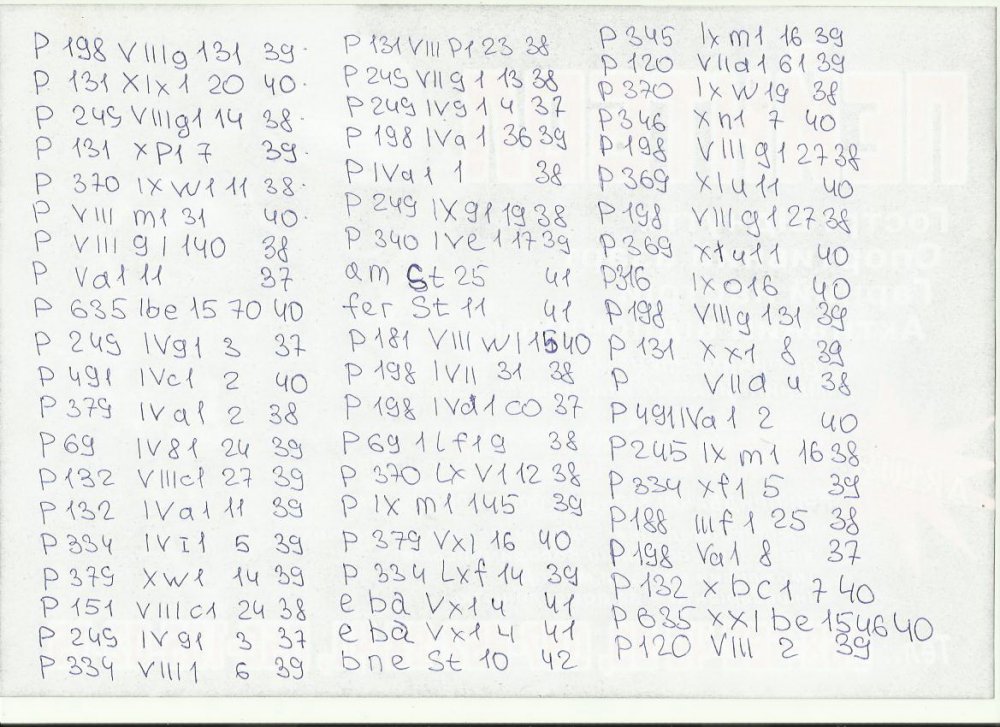 P 198 VIIIg 131 39.
P 131 XIX1 20 40.
P 249 VIIIg1 14 38.
P 131 XP1 7 39.
P 370 IX W1 11 38.
P VIII m1 31 40.
P VIII g1 140 38
P Va1 11 37
P 635 Ibe 15 70 40
P 249 IVg1 3 37
P 491 IVc1 2 40
P 379 IVa1 2 38
P 69 IV81 24 39
P 132 VIIIc1 27 39
P 132 IVa1 11 39
P 334 IVI1 5 39
P 379 XW1 14 39
P 151 VIIIc1 24 38
P 249 IVg1 3 37
P 334 VIII1 6 39
P 131 VIII P1 23 38
P 249 VIIg1 13 38
P 249 IVg1 4 37
P 198 IVa1 36 39
P IVa1 1 38
P 249 IXg1 19 38
P 340 IVe1 17 39
am St 25 41
fer St 11 41
P 181 VIII W1 15 40
P 198 IVII 31 38
P 198 IVd1 co 37
P 69 1Lf19 38
P 370 LX V1 12 38
P IX m1 145 39
P 379 VX1 16 40
P 334 LXf14 39
eba VX1 4 41
eba VX1 4 41
bne St 10 42
P 345 IX m1 16 39
P 120 VIIa1 61 39
P 370 IX W19 38
P 346 Xn1 7 40
P 198 VIII g1 27 38
P 369 XIu11 40
P 198 VIII g1 27 38
P 369 X1u11 40
P 316 IX o16 40
P 198 VIIIg 131 39
P 131 XX1 8 39
P VIIa 4 38
P 491 IVa1 2 40
P 245 IX m1 16 38
P 334 Xf1 5 39
P 188 IIIf1 25 38
P 198 Va1 8 37
P 132 Xbc1 7 40
P 635 XXIbe 154640
P 120 VIII 2 39